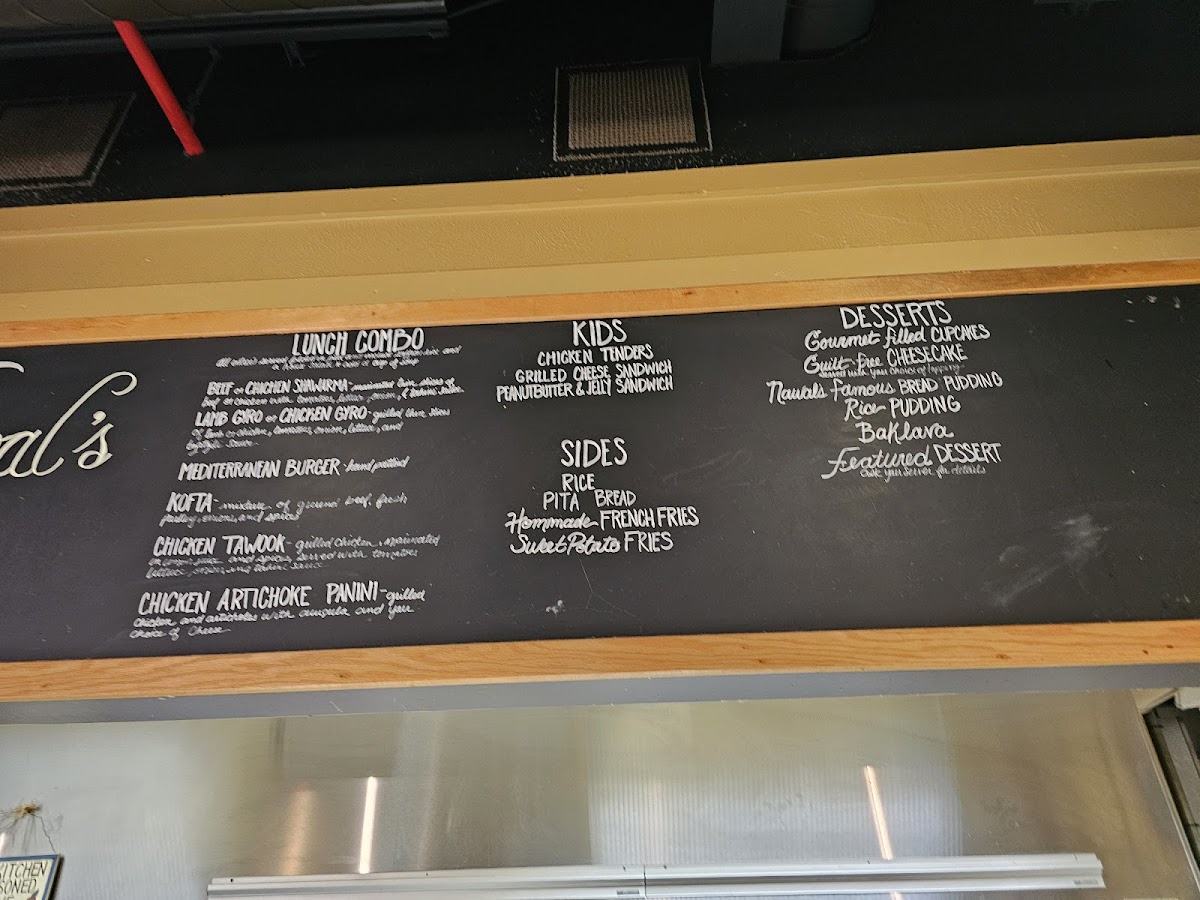 al's
LUNCH COMBO
BEEF or CHICKEN SHAWARMA - marinated thin slices of
beef or chicken with tomatoes, lettuce, onion, & tahini sauce
LAMB GYRO or CHICKEN GYRO - grilled thin slices
of lamb or chicken, tomatoes, onion, lettuce, and
sauce
MEDITERRANEAN BURGER - hand pattied
KOFTA - mixture of ground beef, fresh
parsley, onions, and spices
CHICKEN TAWOOK - grilled chicken, marinated
in juice and spices, served with tomatoes
lettuce, tahini sauce
CHICKEN ARTICHOKE PANINI - grilled
chicken, and artichokes with arugula and your
choice of Cheese
KIDS
CHICKEN TENDERS
GRILLED CHEESE SANDWICH
PEANUTBUTTER & JELLY SANDWICH
SIDES
RICE
PITA BREAD
Hommade FRENCH FRIES
Sweet Potato FRIES
DESSERTS
Gourmet filled CUPCAKES
Guilt-free CHEESECAKE
served with your choice of topping
Nawal's famous BREAD PUDDING
Rice PUDDING
Baklava
Featured DESSERT
ask your server for details
KITCHEN
SONED